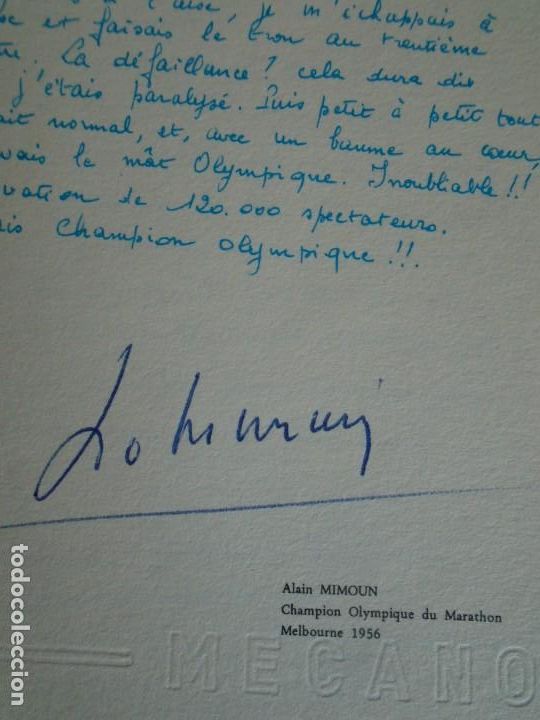 l'aise, je m'échappais à
et faisais le trou au trentième
La défaillance? cela dura dix
j'étais paralysé. Puis petit à petit tout
ait normal, et, avec un baume au cœur,
vais le mât Olympique. Inoubliable!!
vation de 120.000 spectateurs.
ais Champion Olympique!!!
Alain MIMOUN
Champion Olympique du Marathon
Melbourne 1956
MECANO
todocoleccion